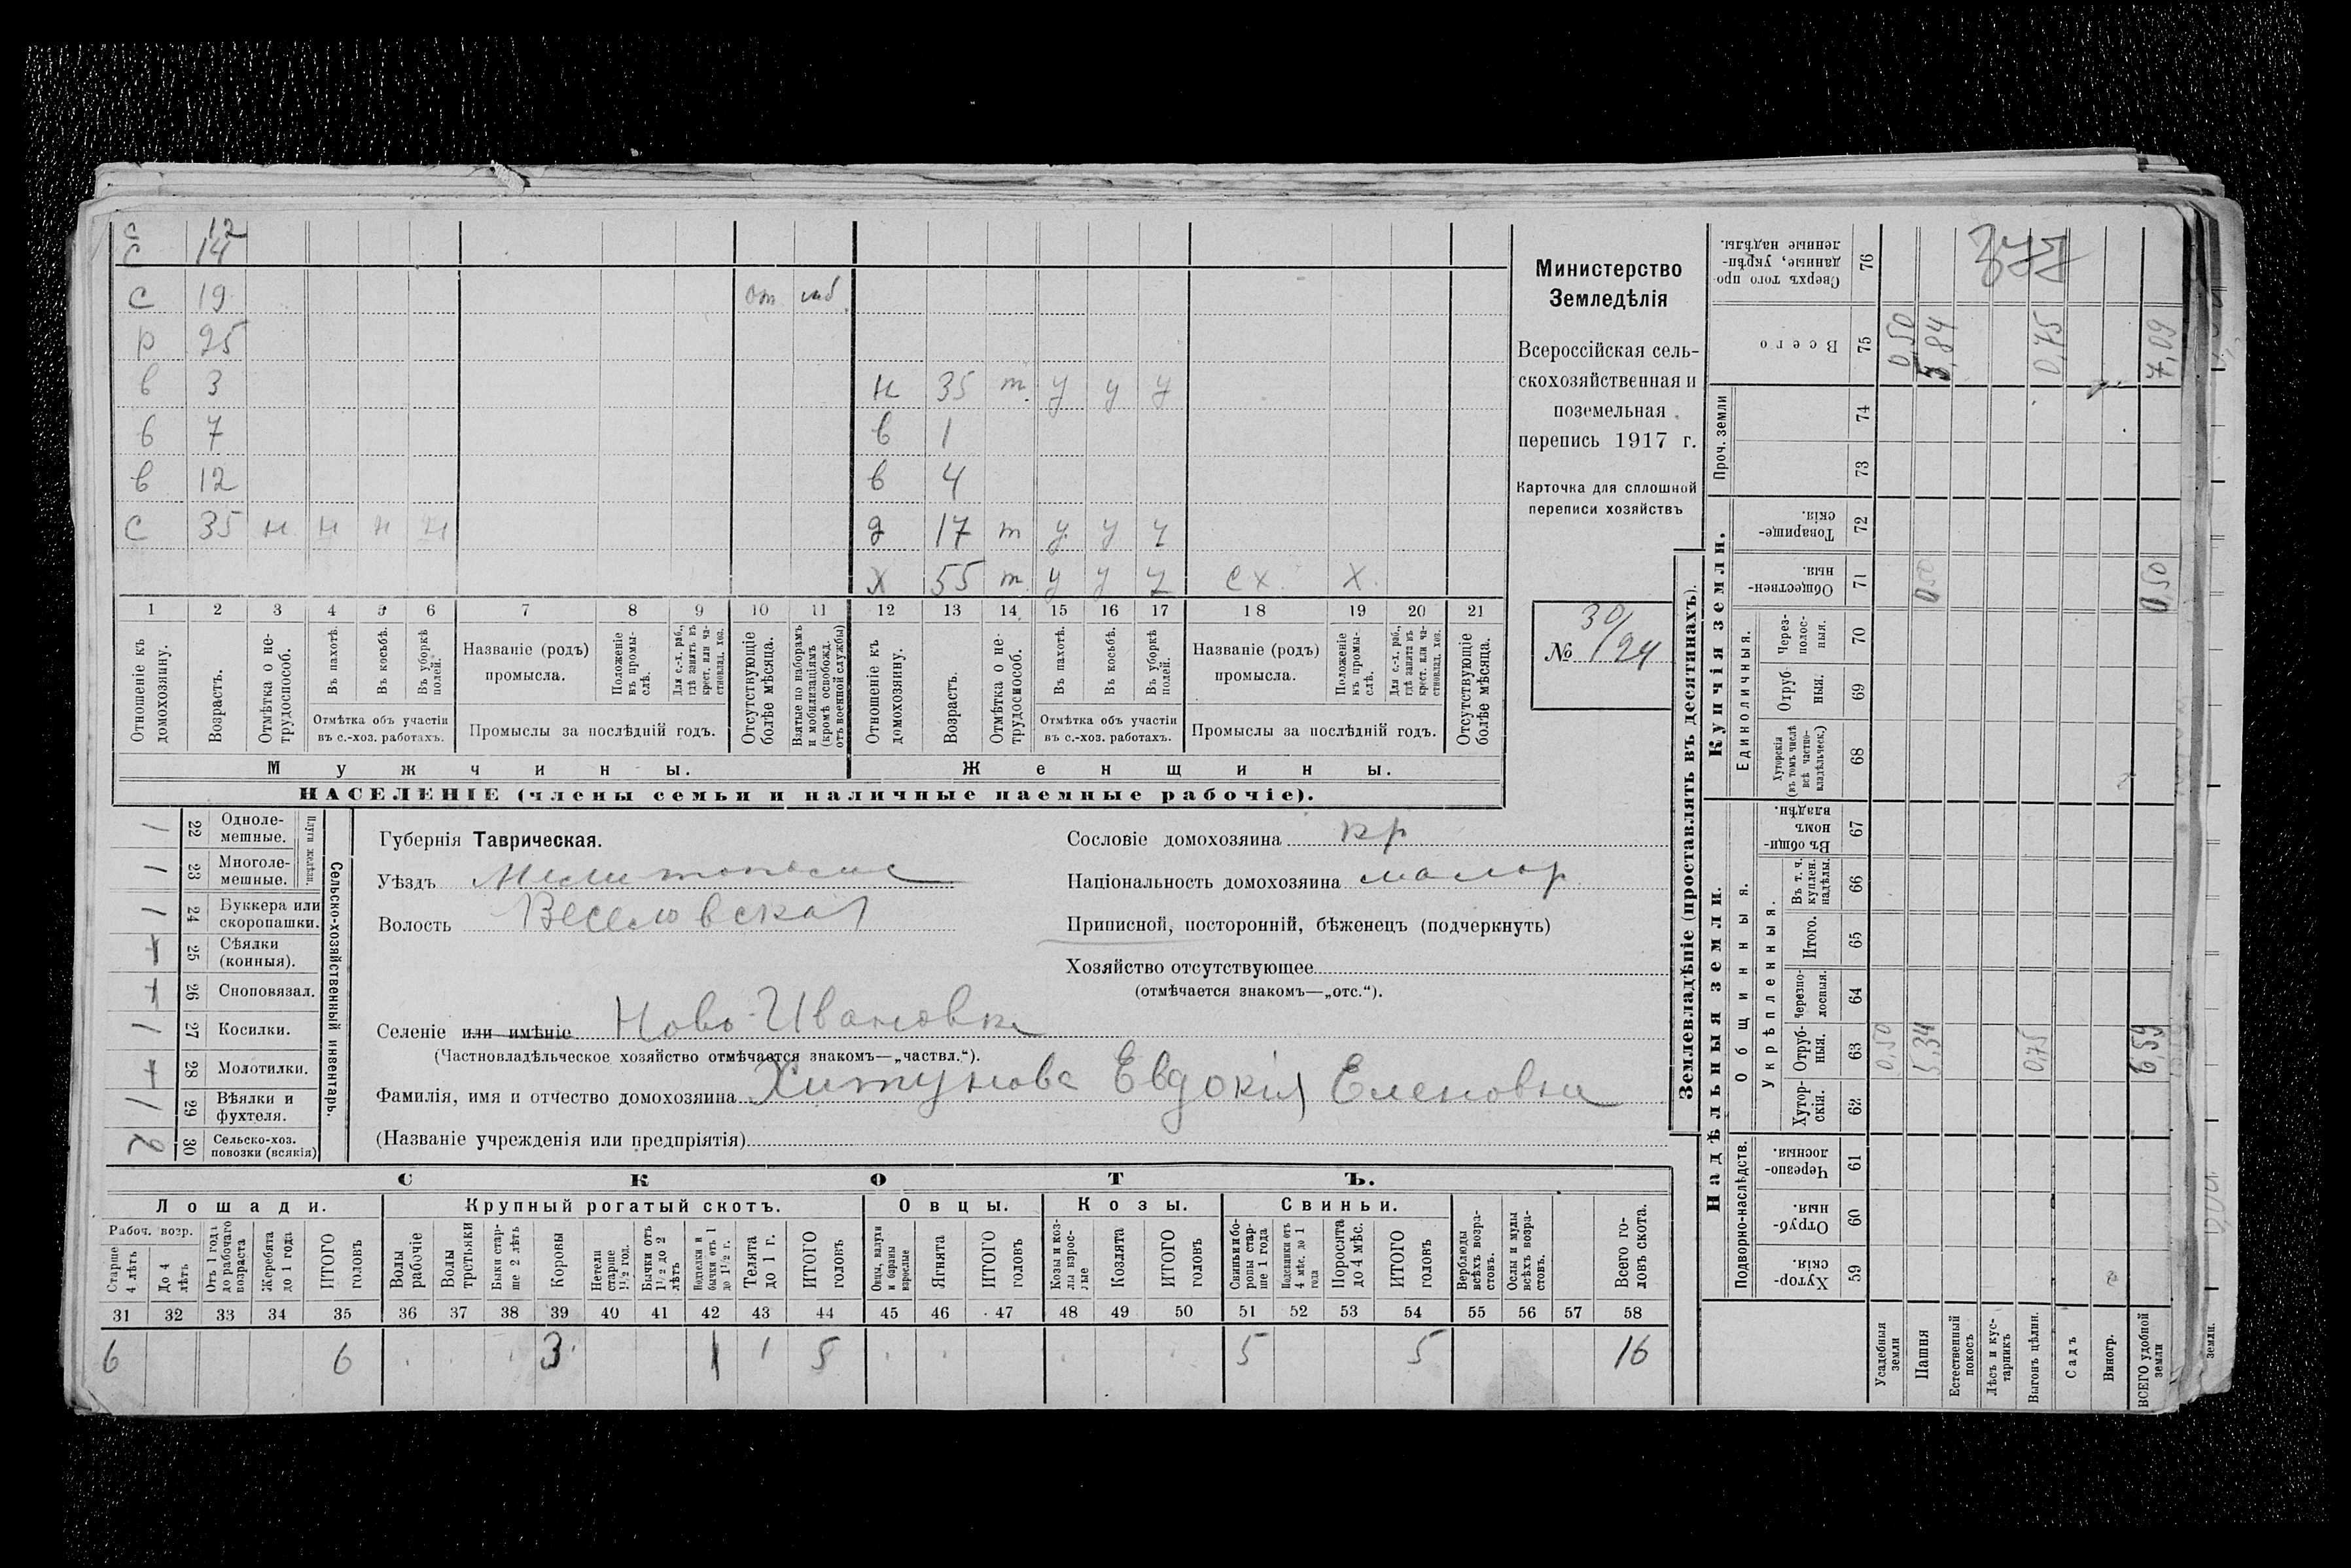 с 12
с 14
с 19 от моб
р 25
в 3 н 35 т у у у
в 7 в 1
в 12 в 4
с 35 н н н н д 17 т у у у
х 55 т у у у сх х
1 2 3 4 5 6 7 8 9 10 11 12 13 14 15 16 17 18 19 20 21
Отношеніе къ домохозяину.
Возрастъ.
Отмѣтка о не-трудоспособ.
Въ пахотѣ.
Въ косьбѣ.
Въ уборкѣ полей.
Отмѣтка объ участіи въ с.-хоз. работахъ.
Названіе (родъ) промысла.
Положеніе въ промы-слѣ.
Для с.-х. раб., гдѣ занятъ въ крест. или ча-стновлад. хоз.
Промыслы за послѣдній годъ.
Отсутствующіе болѣе мѣсяца.
Взятые по наборамъ и мобилизаціямъ (кромѣ освобожд. отъ военной службы)
Отношеніе къ домохозяину.
Возрастъ.
Отмѣтка о не-трудоспособ.
Въ пахотѣ.
Въ косьбѣ.
Въ уборкѣ полей.
Отмѣтка объ участіи въ с.-хоз. работахъ.
Названіе (родъ) промысла.
Положеніе въ промы-слѣ.
Для с.-х. раб., гдѣ занята въ крест. или ча-стновлад. хоз.
Промыслы за послѣдній годъ.
Отсутствующіе болѣе мѣсяца.
Мужчины.
Женщины.
НАСЕЛЕНІЕ (члены семьи и наличные наемные рабочіе).
Министерство
Земледѣлія
Всероссійская сель-
скохозяйственная и
поземельная
перепись 1917 г.
Карточка для сплошной
переписи хозяйствъ
№ 30/24
Сельско-хозяйственный инвентарь.
Плуги желѣзн.
1 22 Одноле-мешные.
1 23 Многоле-мешные.
1 24 Буккера или скоропашки.
+ 25 Сѣялки (конныя).
+ 26 Сноповязал.
1 27 Косилки.
+ 28 Молотилки.
1 29 Вѣялки и фухтеля.
2 30 Сельско-хоз. повозки (всякія)
Губернія Таврическая.
Уѣздъ
Волость Веселовская
Селеніе или имѣніе Ново-Ивановка
(Частновладѣльческое хозяйство отмѣчается знакомъ—„частвл.“).
Фамилія, имя и отчество домохозяина Хитунова Евдокія Еленовна
(Названіе учрежденія или предпріятія)
Сословіе домохозяина кр
Національность домохозяина малор
Приписной, посторонній, бѣженец (подчеркнуть)
Хозяйство отсутствующее
(отмѣчается знакомъ—„отс.“).
СКОТЪ.
Лошади.
Рабоч. возр.
Старше 4 лѣтъ
До 4 лѣтъ
Отъ 1 года до рабочаго возраста
Жеребята до 1 года
ИТОГО головъ
Крупный рогатый скотъ.
Волы рабочіе
Волы третьяки
Быки стар-ше 2 лѣтъ
Коровы
Нетели старше 1½ год.
Бычки отъ 1½ до 2 лѣтъ
Подтелки и бычки отъ 1 до 1½ г.
Телята до 1 г.
ИТОГО головъ
Овцы.
Овцы, валухи и бараны взрослые
Ягнята
ИТОГО головъ
Козы.
Козы и коз-лы взрос-лые
Козлята
ИТОГО головъ
Свиньи.
Свиньи и бо-ровы стар-ше 1 года
Подсвинки отъ 4 мѣс. до 1 года
Поросята до 4 мѣс.
ИТОГО головъ
Верблюды всѣхъ возра-стовъ.
Ослы и мулы всѣхъ возра-стовъ.
Всего го-ловъ скота.
31 32 33 34 35 36 37 38 39 40 41 42 43 44 45 46 47 48 49 50 51 52 53 54 55 56 57 58
6 6 3 1 1 5 5 5 16
Землевладѣніе (проставлять въ десятинахъ).
Надѣльныя земли.
Купчія земли.
Проч. земли
Подворно-наслѣдств.
Общинныя.
Укрѣпленныя.
Единоличныя.
Сверхъ того про-данные, укрѣп-ленные надѣлы. 76
Всего 75 0,50 5,84 0,75 7,09
74
73
Товарище-скія. 72
Обществен-ныя. 71 0,50 0,50
Через-полос-ныя. 70
Отруб-ныя. 69
Хуторскія (въ томъ числѣ всѣ частно-владѣльческ.) 68
Въ общин-номъ владѣн. 67
Въ т. ч. куплен. надѣлы. 66
Итого. 65
Черезпо-лосныя. 64
Отруб-ныя. 63 0,50 5,34 0,75 6,59
Хутор-скія. 62
Черезпо-лосныя. 61
Отруб-ныя. 60
Хутор-скія. 59
Усадебныя земли
Пашня
Естественный покосъ
Лѣсъ и кус-тарникъ
Выгонъ цѣлин.
Садъ
Виногр.
ВСЕГО удобной земли
земли.